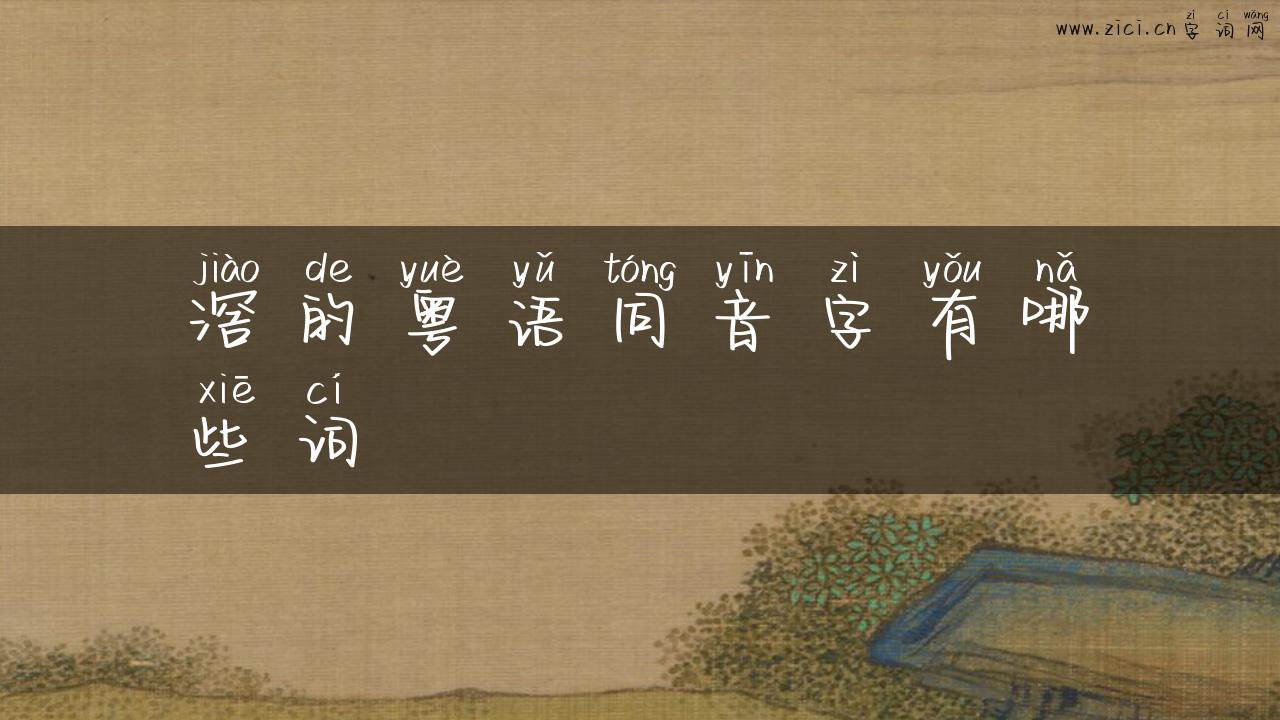 zì cí wǎng
www.zici.cn 字 词 网
jiào de yuè yǔ tóng yīn zì yǒu nǎ
滘 的 粤 语 同 音 字 有 哪
xiē cí
些 词